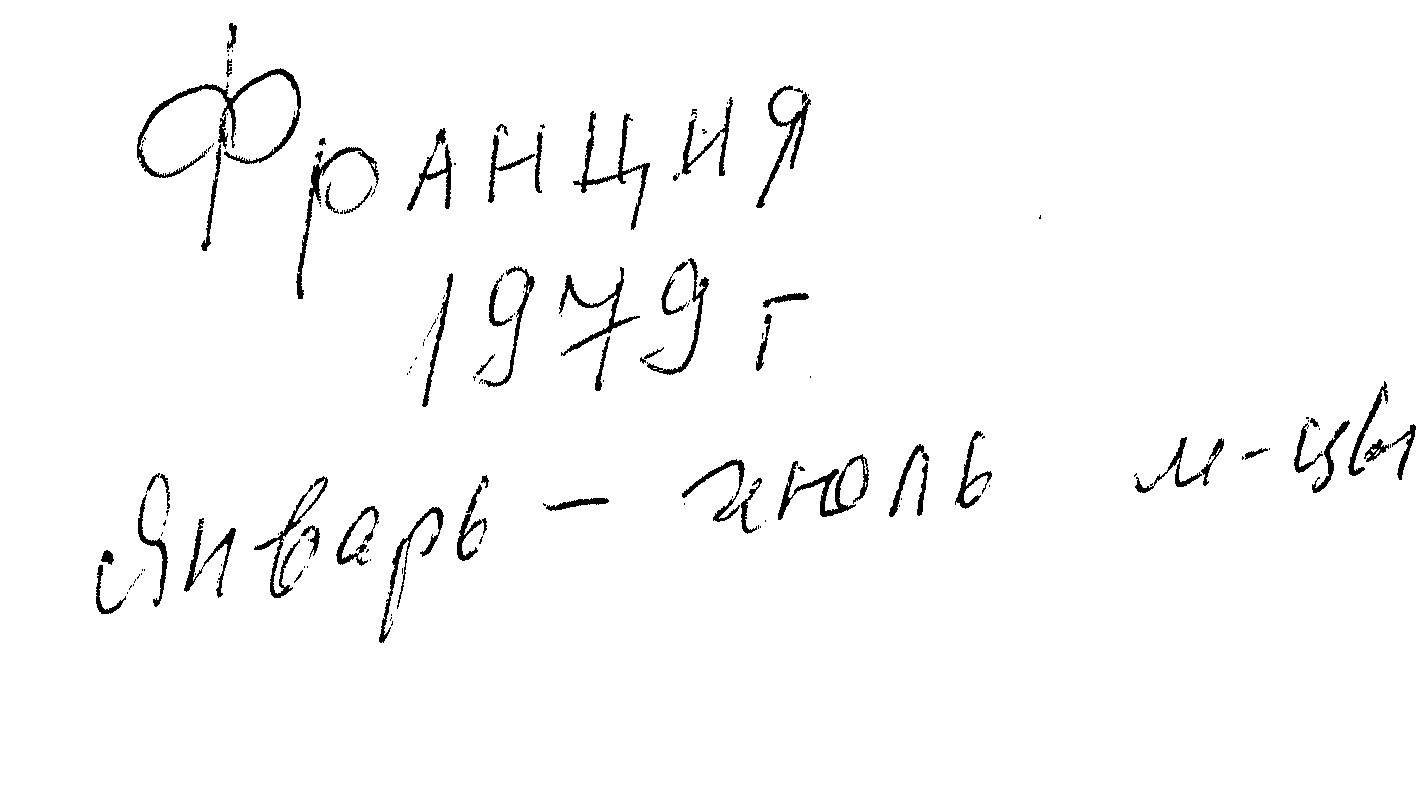 Франция
1979 г
Январь - июль м-цы